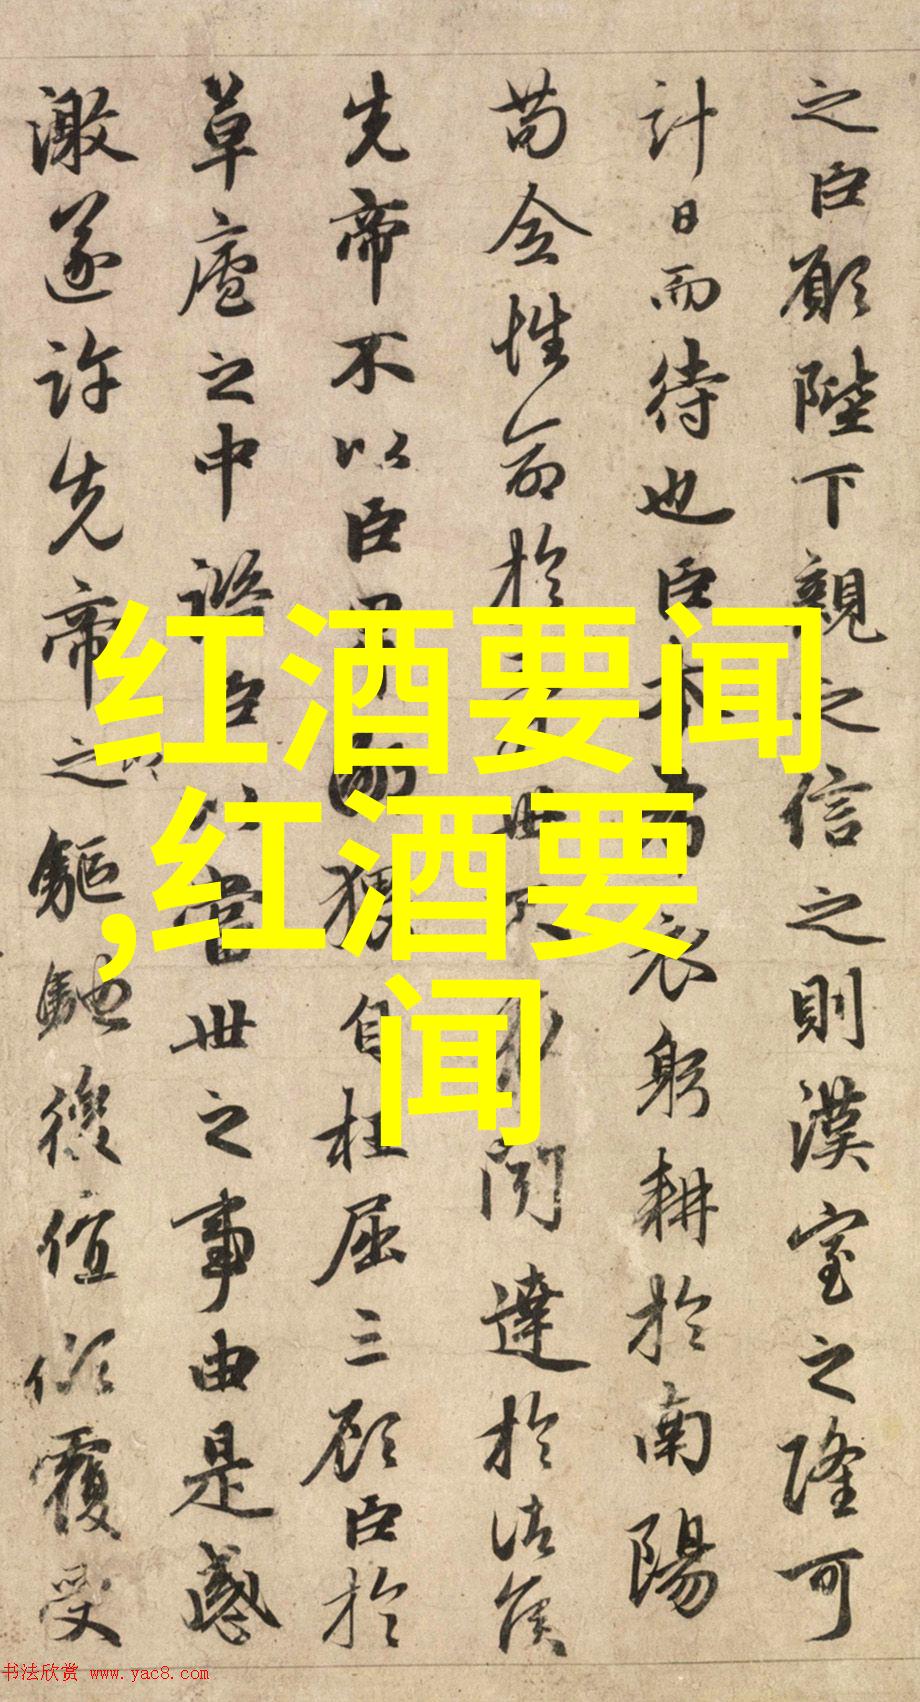 之臣願陛下親之信之則漢室之隆可
計日而待也臣本布衣躬耕於南陽
苟全性命於世不求聞達於諸侯
先帝不以臣鄙猥自枉屈三顧臣於
草廬之中諮臣以當世之事由是感
激遂許先帝之以驅馳後值傾覆受
红酒要闻
,红酒要
闻
书法欣赏 www.yac8.com